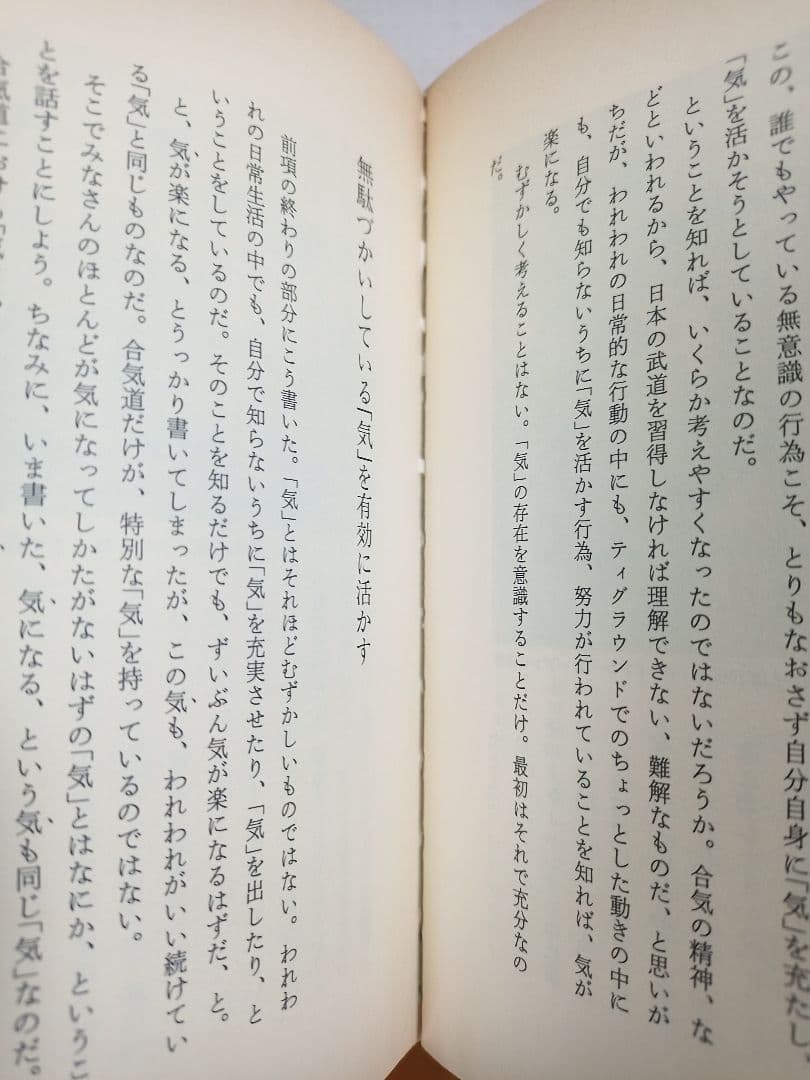 この、誰でもやっている無意識の行為こそ、とりもなおさず自分自身に「気」を充たし、
「気」を活かそうとしていることなのだ。
ということを知れば、いくらか考えやすくなったのではないだろうか。合気の精神、な
どといわれるから、日本の武道を習得しなければ理解できない、難解なものだ、と思いが
ちだが、われわれの日常的な行動の中にも、ティグラウンドでのちょっとした動きの中に
も、自分でも知らないうちに「気」を活かす行為、努力が行われていることを知れば、気が
楽になる。
むずかしく考えることはない。「気」の存在を意識することだけ。最初はそれで充分なの
だ。
無駄づかいしている「気」を有効に活かす
前項の終わりの部分にこう書いた。「気」とはそれほどむずかしいものではない。われわ
れの日常生活の中でも、自分で知らないうちに「気」を充実させたり、「気」を出したり、と
いうことをしているのだ。そのことを知るだけでも、ずいぶん気が楽になるはずだ、と。
と、気が楽になる、とうっかり書いてしまったが、この気も、われわれがいい続けてい
る「気」と同じものなのだ。合気道だけが、特別な「気」を持っているのではない。
そこでみなさんのほとんどが気になってしかたがないはずの「気」とはなにか、というこ
とを話すことにしよう。ちなみに、いま書いた、気になる、という気も同じ「気」なのだ。